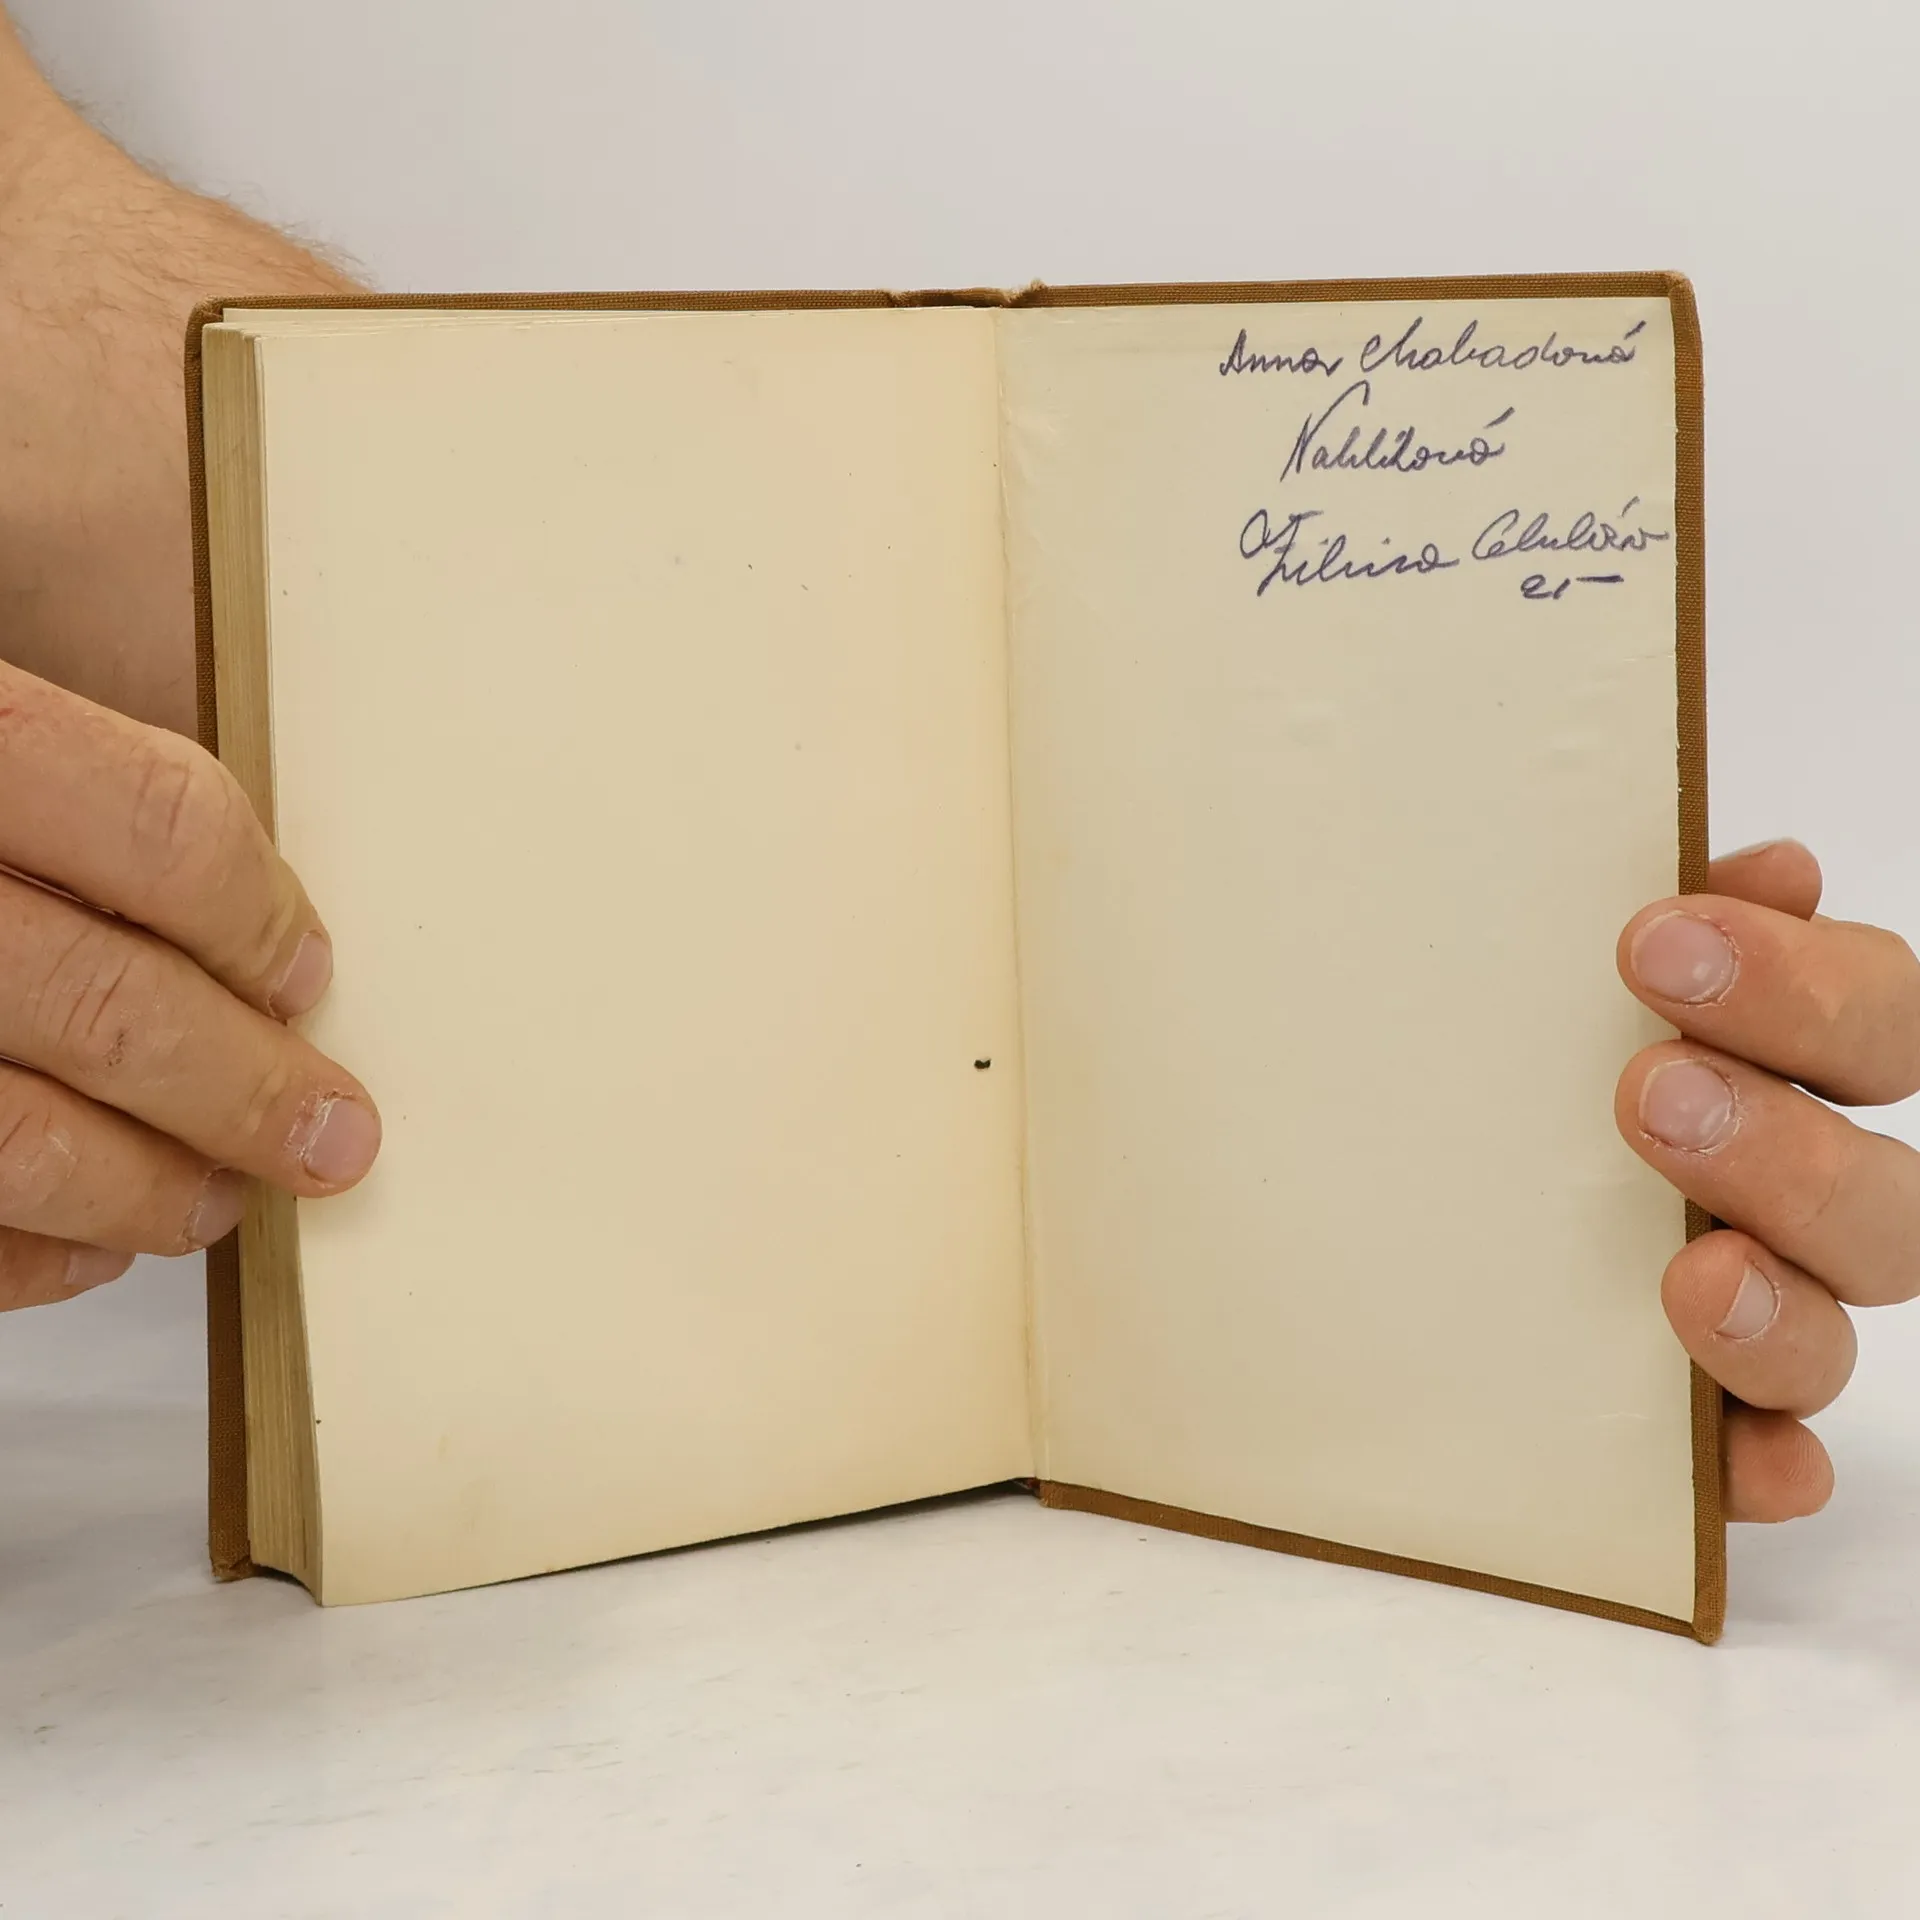 Anna Chabadová
Nahliková
Žilina Celulózv
21 —